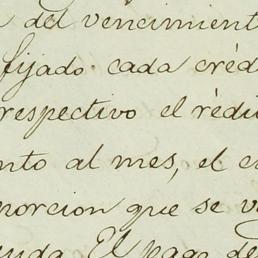 del vencimient
fijado cada créd
respectivo el rédi
nto al mes, el c
porcion que se v
uda. El pago de